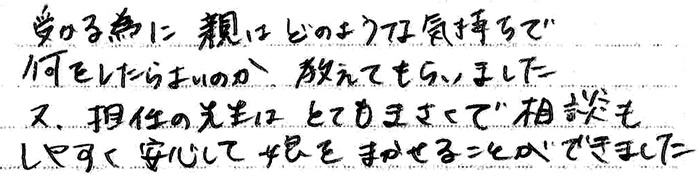 受ける為に 親は どのような気持ちで
何をしたらよいのか 教えてもらいました
又、担任の先生は とてもきさくで 相談も
しやすく 安心して 娘を まかせることが できました